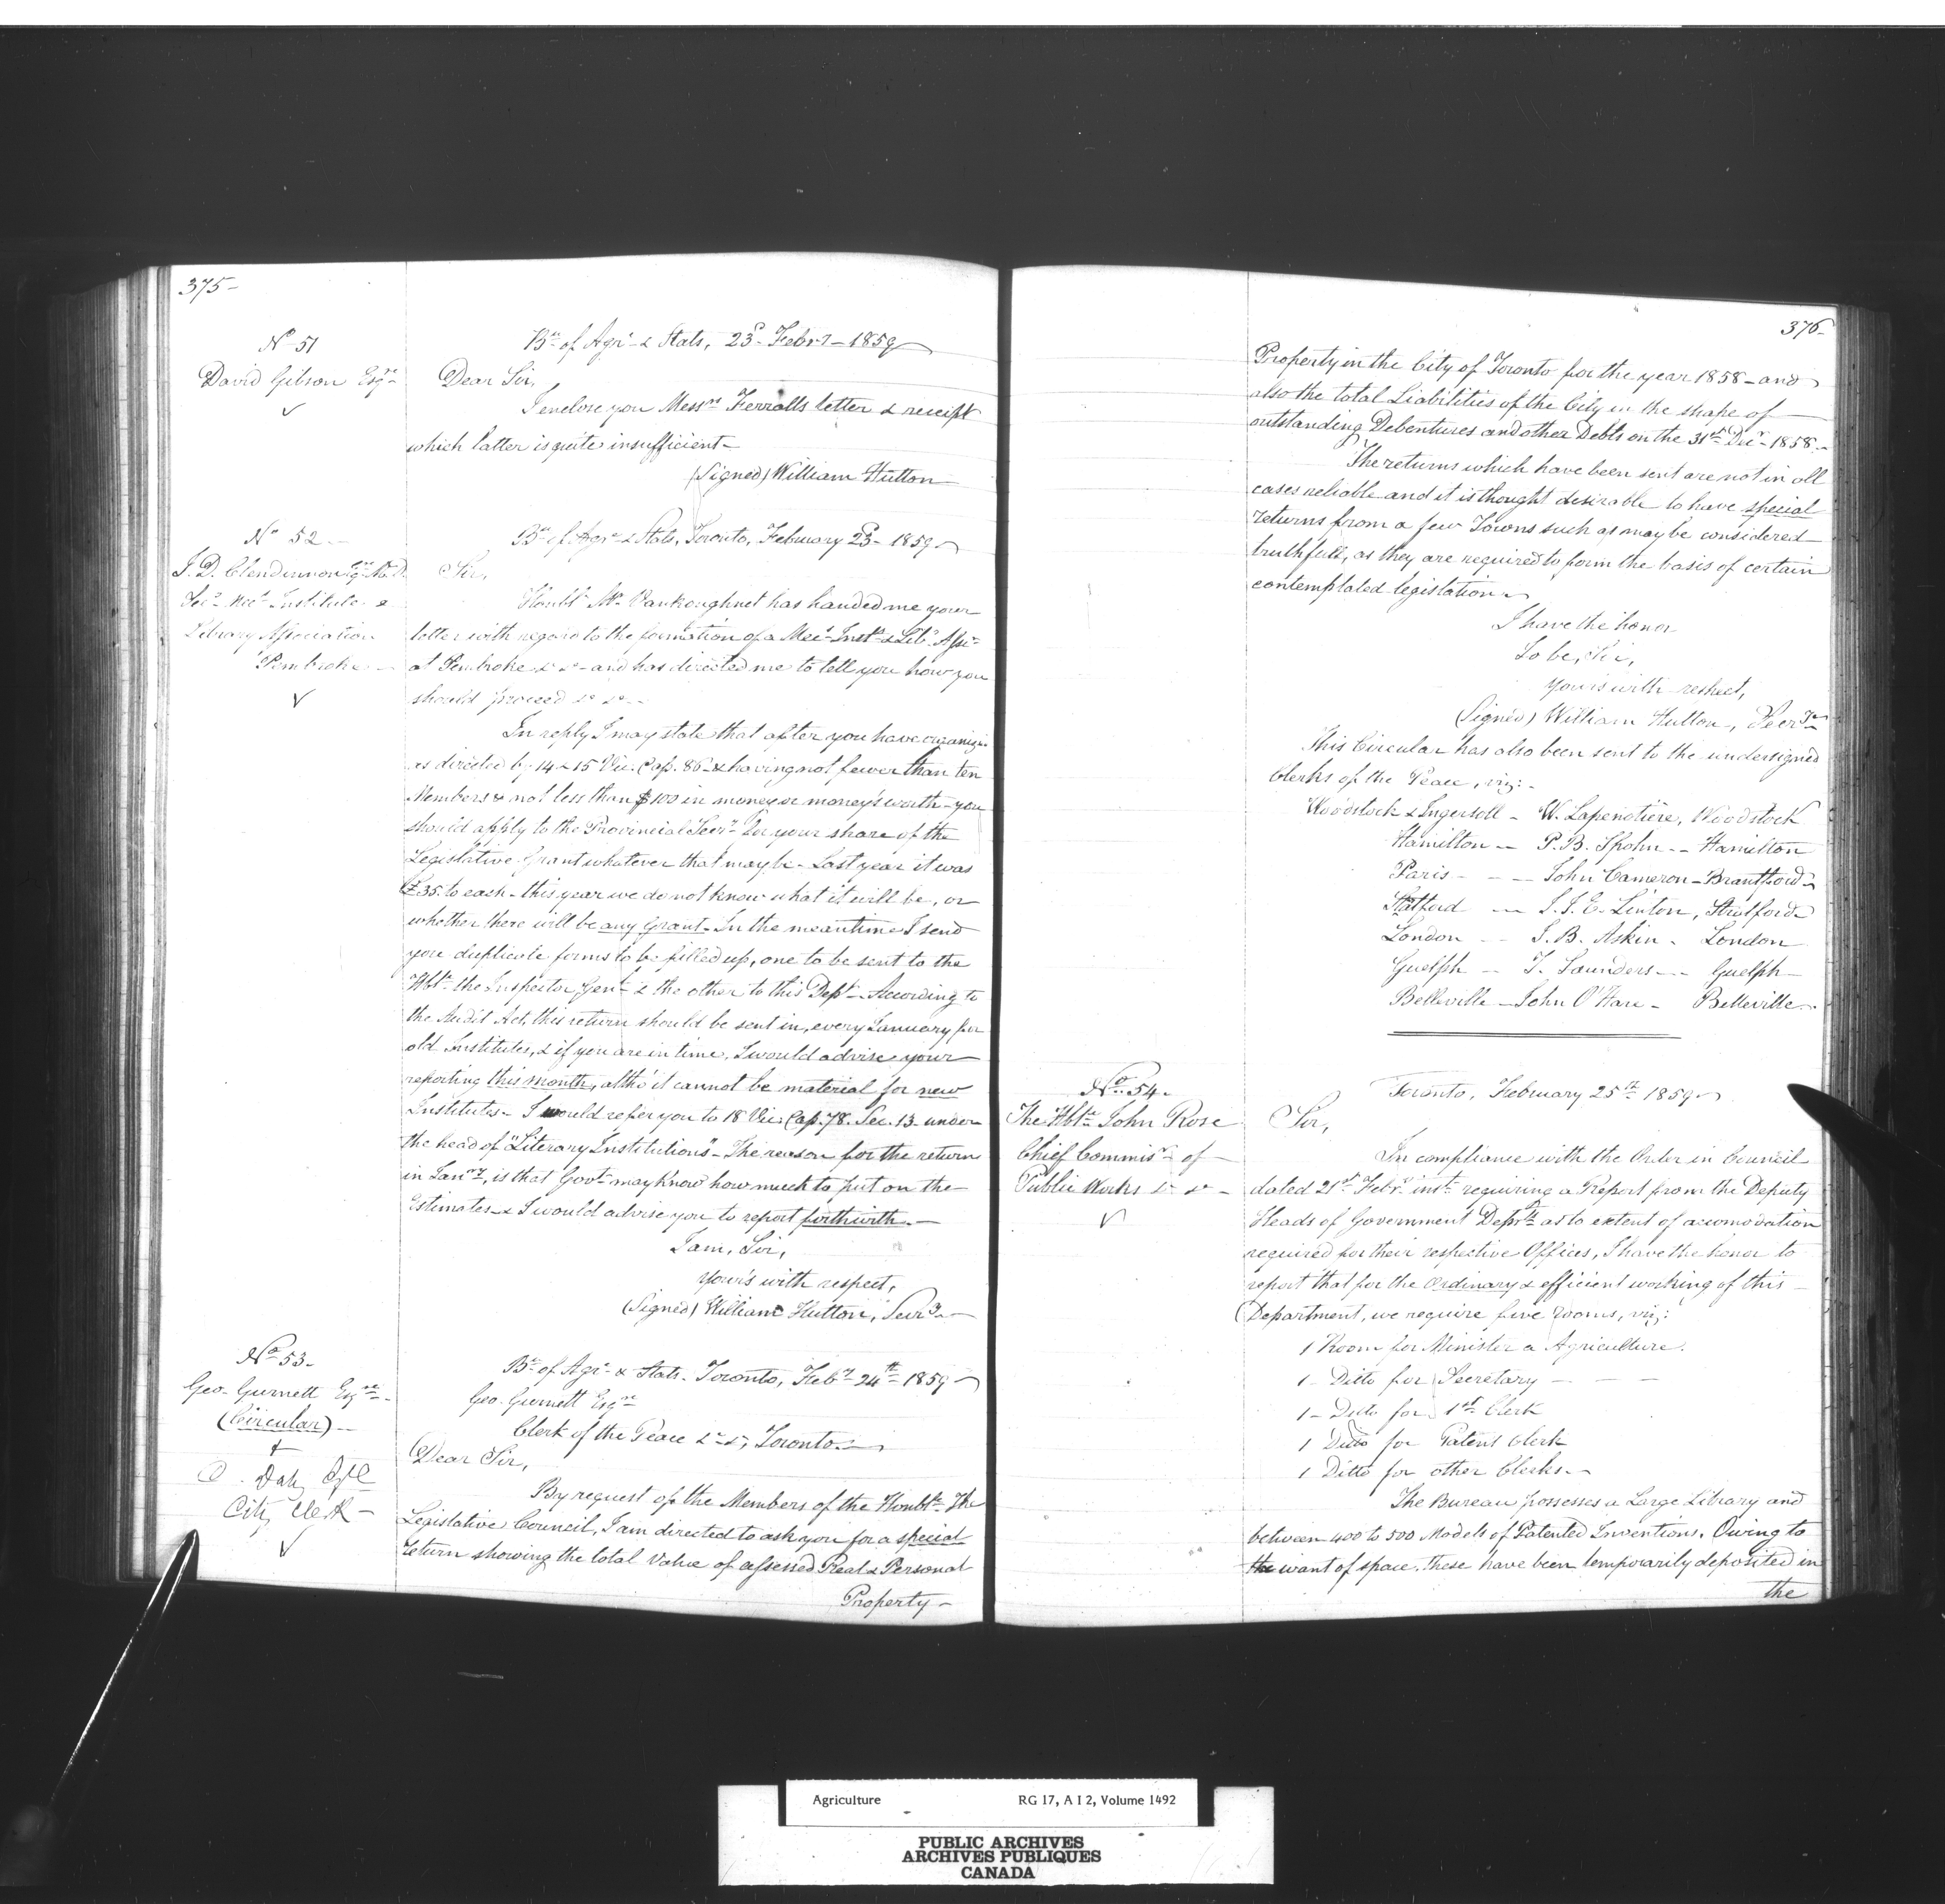 375-
No 51
David Gibson Esqre
Br of Agrl & Stats, 23d Febry - 1859
Dear Sir,
I enclose you Messrs Ferralls letter & receipt
which latter is quite insufficient-
(Signed) William Hutton
No 52-
J. D. Clendinnon Esqre
Secy Mecs Institute &
Library Association
Pembroke -
Br of Agre & Stats, Toronto, February 23d 1859
Sir,
Honble Mr Vankoughnet has handed me your
letter with regard to the formation of a Mecs Instte & Liby Assn
at Pembroke &c &c - and has directed me to tell you how you
should proceed &c &c -
In reply I may state that after you have organized
as directed by 14 & 15 Vic. Cap. 86 & having not fewer than ten
Members & not less than $100 in money or money's worth - you
should apply to the Provincial Secry for your share of the
Legislative Grant whatever that may be - Last year it was
£35. to each - this year we do not know what it will be, or
whether there will be any Grant. In the meantime I send
you duplicate forms to be filled up, one to be sent to the
Hble the Inspector Genl & the other to this Dept - According to
the Audit Act, this return should be sent in, every January for
old Institutes, & if you are in time, I would advise your
reporting this month, altho' it cannot be material for new
Institutes - I would refer you to 18 Vic. Cap. 78. Sec. 13 under
the head of "Literary Institutions" - The reason for the return
in Jany, is that Govt may know how much to put on the
Estimates & I would advise you to report forthwith. -
I am, Sir,
Your's with respect,
(Signed) William Hutton, Secry
No 53.
Geo. Gurnett Esqre
(Circular) -
+
City Clerk -
Br of Agre & Stats. Toronto, Feby 24th 1859
Geo. Gurnett Esqre
Clerk of the Peace &c &c, Toronto
Dear Sir,
By request of the Members of the Honble The
Legislative Council, I am directed to ask you for a special
return showing the total Value of assessed Real & Personal
Property -
376-
Property in the City of Toronto for the year 1858 - and
also the total Liabilities of the City in the shape of
outstanding Debentures and other Debts on the 31st Decr 1858 -
The returns which have been sent are not in all
cases reliable and it is thought desirable to have special
returns from a few Towns such as may be considered
truthfull, as they are required to form the basis of certain
contemplated legislation
I have the honor
To be, Sir,
Your's with respect,
(Signed) William Hutton, Secry
This Circular has also been sent to the undersigned
Clerks of the Peace, viz: -
Woodstock & Ingersoll - W. Lapenotière, Woodstock
Hamilton - P. B. Spohn - Hamilton
Paris - - - John Cameron - Brantford
Statford - J. J. E. Linton, Stratford
London - J. B. Askin - London
Guelph - T. Saunders - Guelph
Belleville - John O'Hare - Belleville
No 54.
The Hble John Rose
Chief Commisr of
Public Works &c &c -
Toronto, February 25th 1859
Sir,
In compliance with the Order in Council
dated 21st Febry inst. requiring a Report from the Deputy
Heads of Government Deprts as to extent of accomodation
required for their respective Offices, I have the honor to
report that for the Ordinary & efficient working of this
Department, we require five rooms, viz:
1 Room for Minister a Agriculture.
1 - Ditto for Secretary - - -
1 - Ditto for 1st Clerk
1 Ditto for Patent Clerk
1 Ditto for other Clerks. -
The Bureau possesses a Large Library and
between 400 to 500 Models of Patented Inventions. Owing to
the want of space, these have been temporarily deposited in
the
Agriculture RG 17, A I 2, Volume 1492
PUBLIC ARCHIVES
ARCHIVES PUBLIQUES
CANADA